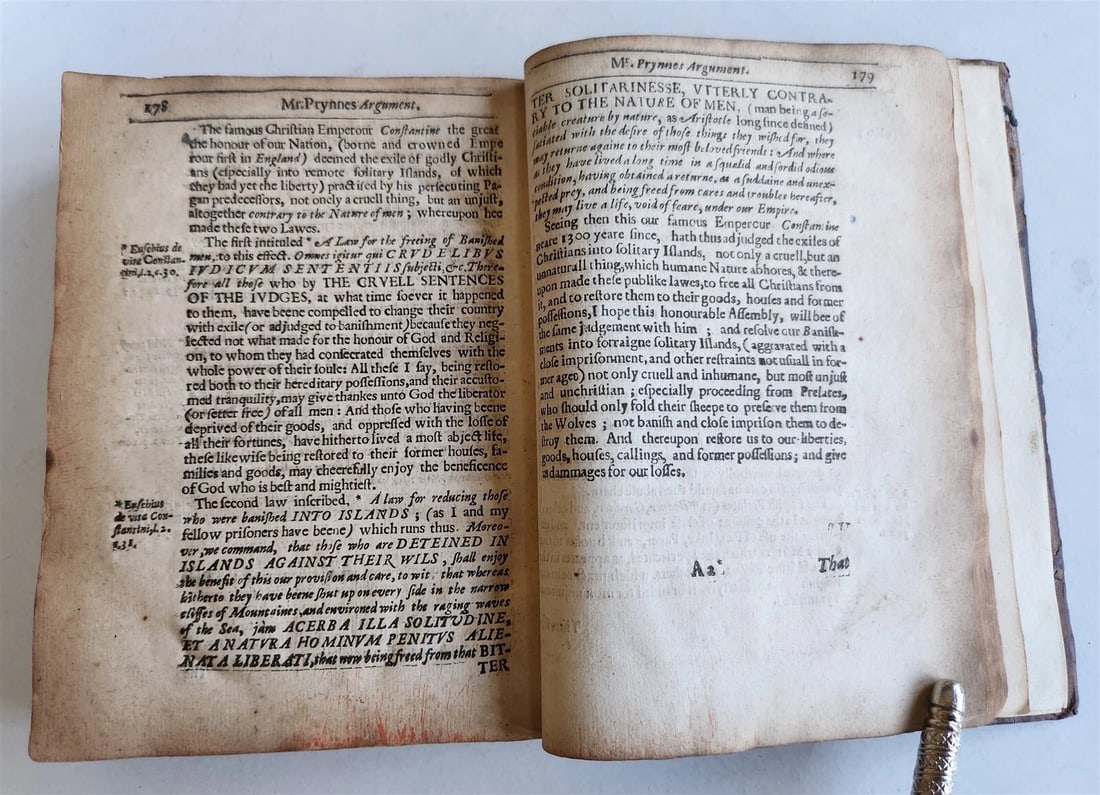 178
Mr. Prynnes Argument.
The famous Christian Emperour Constantine the great
the honour of our Nation, (borne and crowned Empe
rour first in England) deemed the exile of godly Christi-
ans (especially into remote solitary Islands, of which
they had yet the liberty) practised by his persecuting Pa-
gan predecessors, not onely a cruell thing, but an unjust,
altogether contrary to the Nature of men; whereupon hee
made these two Lawes.
The first intituled * A Law for the freeing of Banished
men, to this effect. Omnes igitur qui CRVDELIBVS
IVDICVM SENTENTIIS subjecti, &c. There-
fore all those who by THE CRVELL SENTENCES
OF THE IVDGES, at what time soever it happened
to them, have beene compelled to change their country
with exile (or adjudged to banishment) because they neg-
lected not what made for the honour of God and Religi-
on, to whom they had consecrated themselves with the
whole power of their soule: All these I say, being resto-
red both to their hereditary possessions, and their accusto-
med tranquility, may give thankes unto God the liberator
(or setter free) of all men: And those who having beene
deprived of their goods, and oppressed with the losse of
all their fortunes, have hitherto lived a most abject life,
these likewise being restored to their former houses, fa-
milies and goods, may cheerefully enjoy the beneficence
of God who is best and mightiest.
The second law inscribed, * A law for reducing those
who were banished INTO ISLANDS; (as I and my
fellow prisoners have beene) which runs thus. Moreo-
ver, we command, that those who are DETEINED IN
ISLANDS AGAINST THEIR WILS, shall enjoy
the benefit of this our provision and care, to wit, that whereas
hitherto they have beene shut up on every side in the narrow
cliffes of Mountaines, and environed with the raging waves
of the Sea, jam ACERBA ILLA SOLITUDINE,
ET A NATVRA HOMINVM PENITVS ALIE-
NATA LIBERATI, that now being freed from that BIT-
TER
* Eusebius de
vita Constan-
tini, l. 2, c. 30.
* Eusebius
de vita Con-
stantini, l. 2.
Mr. Prynnes Argument.
179
TER SOLITARINESSE, VTTERLY CONTRA-
RY TO THE NATURE OF MEN, (man being a so-
ciable creature by nature, as Aristotle long since defined)
satiated with the desire of those things they wished for, they
may returne againe to their most beloved friends: And where
as they have lived a long time in a squelid and sordid odious
condition, having obtained a returne, as a suddaine and unex-
pected prey, and being freed from cares and troubles hereafter,
they may live a life, void of feare, under our Empire.
Seeing then this our famous Emperour Constantine
neare 1300 yeare since, hath thus adjudged the exiles of
Christians into solitary Islands, not only a cruell, but an
unnaturall thing, which humane Nature abhores, & there-
upon made these publike lawes, to free all Christians from
it, and to restore them to their goods, houses and former
possessions, I hope this honourable Assembly, will bee of
the same judgement with him; and resolve our Banish-
ments into forraigne solitary Islands, (aggravated with a
close imprisonment, and other restraints not usuall in for-
mer ages) not only cruell and inhumane, but most unjust
and unchristian; especially proceeding from Prelates,
who should only fold their sheepe to preserve them from
the Wolves; not banish and close imprison them to de-
stroy them. And thereupon restore us to our liberties,
goods, houses, callings, and former possessions; and give
us dammages for our losses.
Aa
That